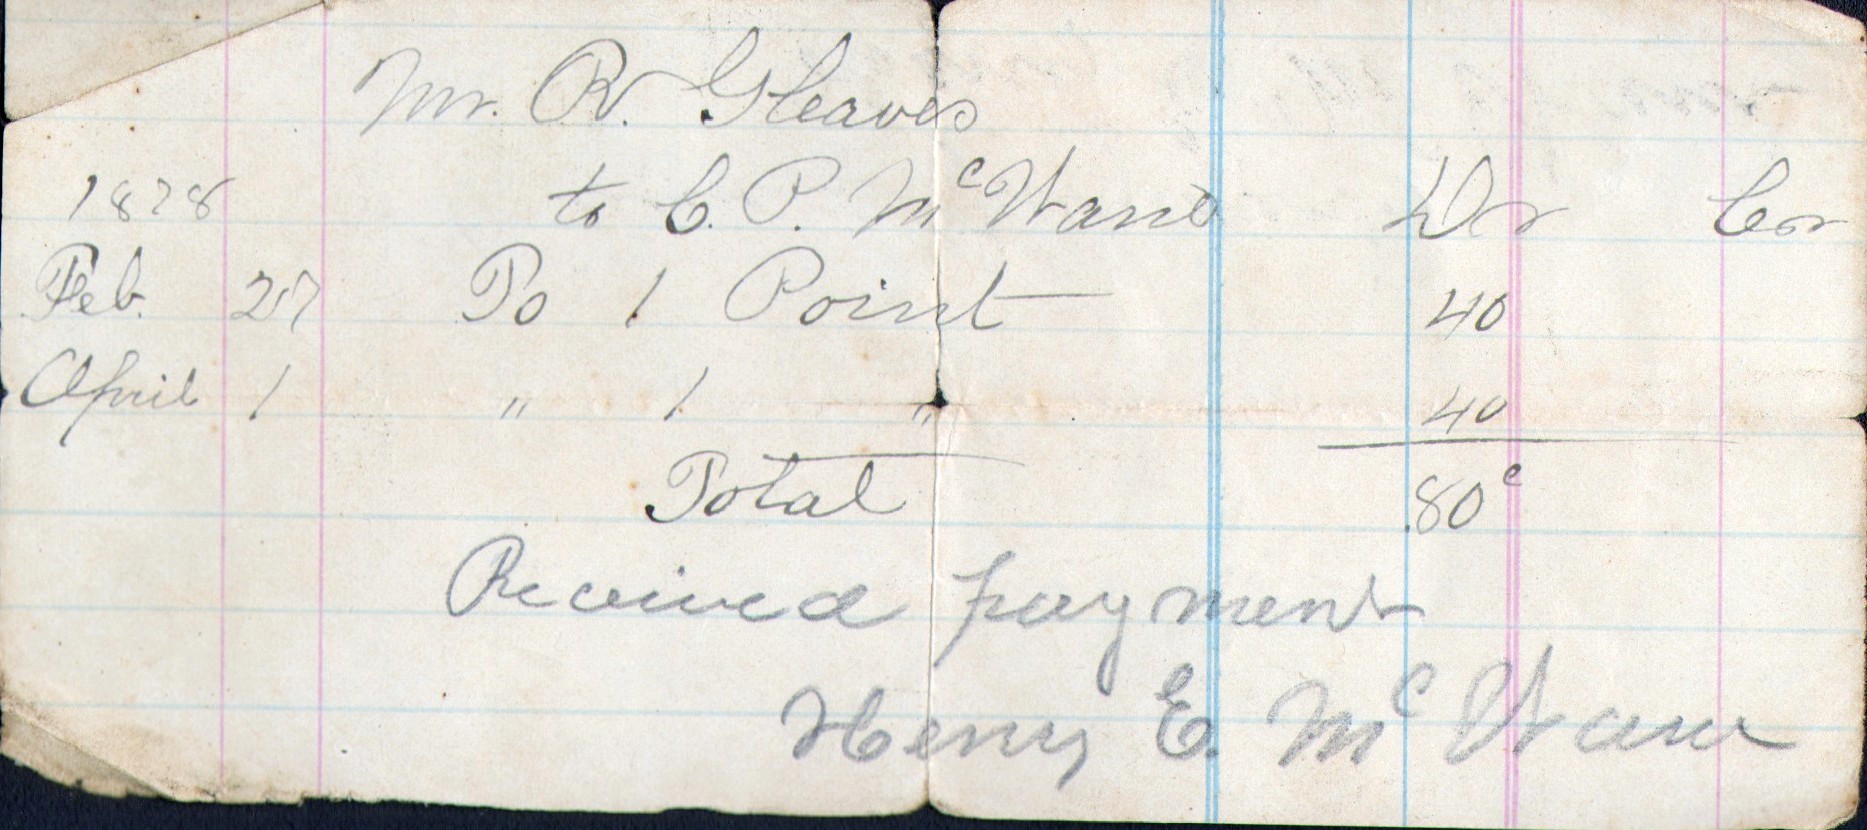 Mr. R. Gleaves
1878 to C. P. McWane Dr Cr
Feb. 27 To 1 Point 40
April 1 " 1 " 40
Total .80c
Received payment
Henry E. McWane